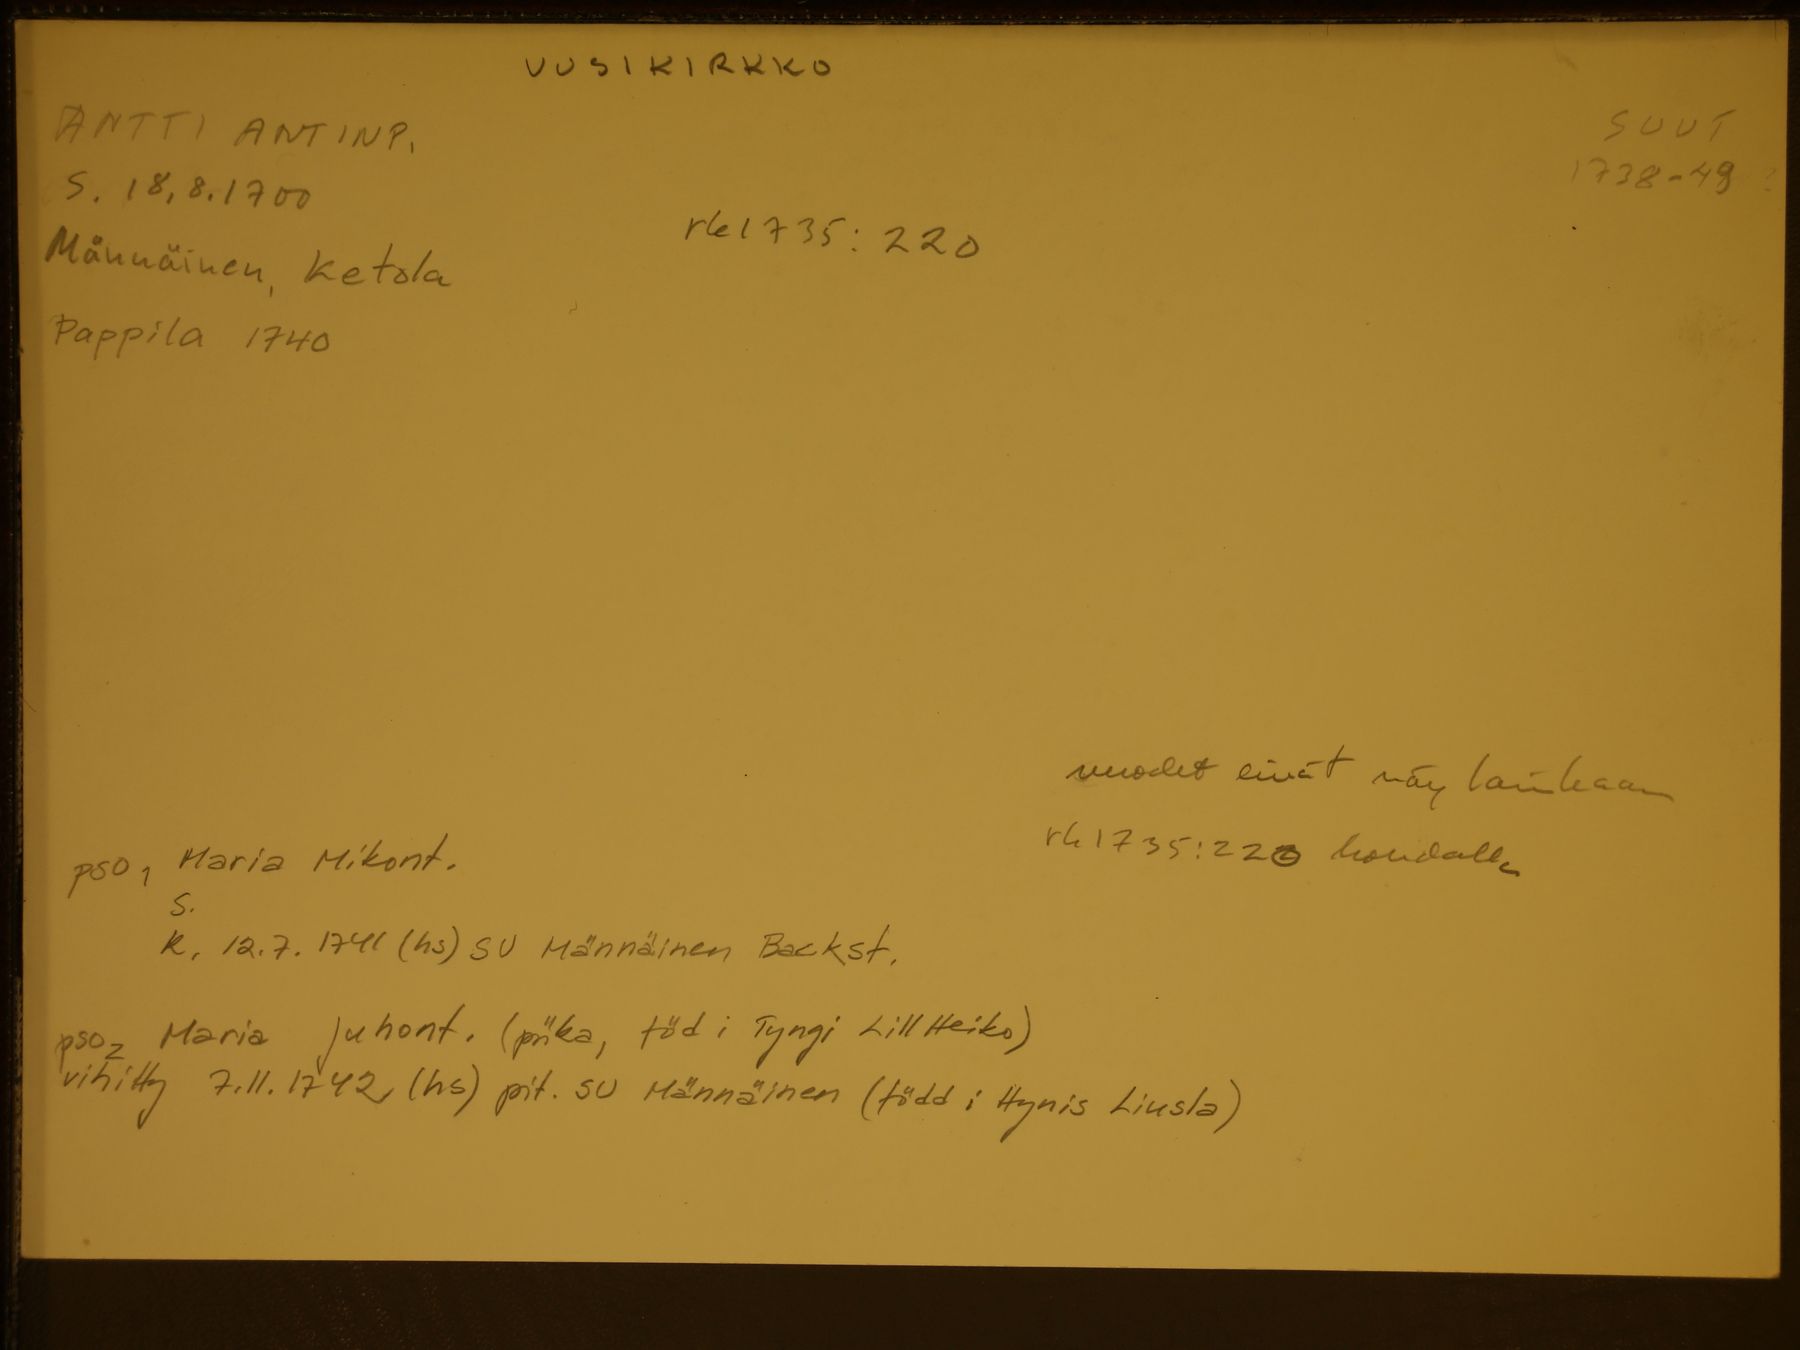 UUSIKIRKKO
ANTTI ANTINP.
SUUT
1738-49 ?
S. 18.8.1700
rk 1735: 220
Männäinen, Ketola
Pappila 1740
vuodet eivät näy lainkaan
rk 1735:220 kohdalla
pso1 Maria Mikont.
S.
K. 12.7. 1741 (hs) SU Männäinen Backst.
pso2 Maria Juhont. (piika, töd i Tyngi LillHeiko)
vihitty 7.11.1742 (hs) pit. SU Männäinen (född i Hynis Liusla)